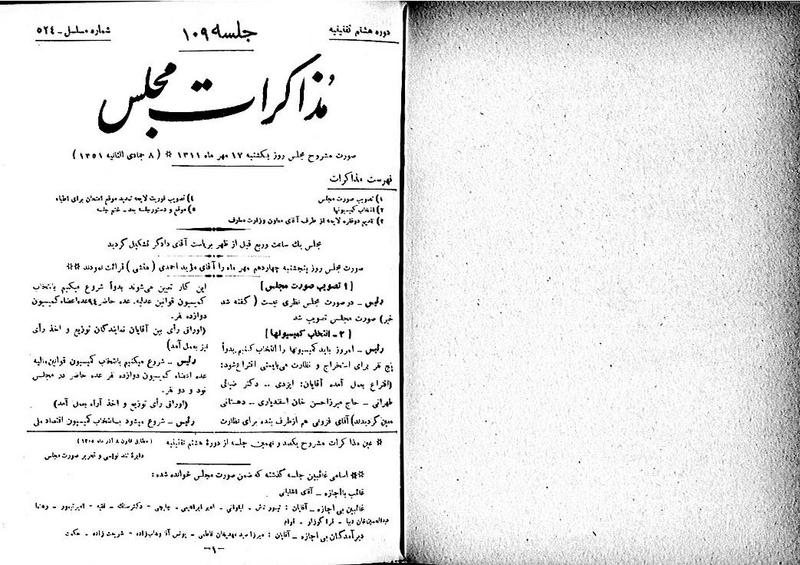 دوره هشتم تقنینیه
جلسه ۱۰۹
شماره مسلسل - ۵۲۴
مذاکرات مجلس
صورت مشروح مجلس روز یکشنبه ۱۷ مهر ماه ۱۳۱۱ * (۸ جمادی الثانیه ۱۳۵۱)
فهرست مذاکرات
۱) تصویب صورت مجلس
۲) انتخاب کمیسیونها
۳) تقدیم دو فقره لایحه از طرف آقای معاون وزارت معارف
۴) تصویب فوریت لایحه تمدید موقع امتحان برای اطباء
۵) موقع و دستور جلسه بعد - ختم جلسه
مجلس یك ساعت و ربع قبل از ظهر بریاست آقای دادگر تشکیل گردید
صورت مجلس روز پنجشنبه چهاردهم مهر ماه را آقای مؤید احمدی (منشی) قرائت نمودند **
[۱ تصویب صورت مجلس]
رئیس - در صورت مجلس نظری نیست (گفته شد
خیر) صورت مجلس تصویب شد
[۲ - انتخاب کمیسیونها]
رئیس - امروز باید کمیسیونها را انتخاب کنیم بدواً
پنج نفر برای استخراج و نظارت می‌بایستی اقتراع شود:
(اقتراع بعمل آمده آقایان: ایزدی .. دکتر ضیائی
طهرانی - حاج میرزا حسن خان اسفندیاری .. دهستانی
معین گردیدند) آقای فزونی هم از طرف بنده برای نظارت
این کار تعیین می‌شوند بدواً شروع میکنیم بانتخاب
کمیسیون قوانین عدلیه. عده حاضر ۹۴ عده اعضاء کمیسیون
دوازده نفر.
(اوراق رأی بین آقایان نمایندگان توزیع و اخذ رأی
نیز بعمل آمد)
رئیس - شروع میکنیم بانتخاب کمیسیون قوانین مالیه
عده اعضاء کمیسیون دوازده نفر عده حاضر در مجلس
نود و دو نفر.
(اوراق رأی توزیع و اخذ آراء بعمل آمد)
رئیس - شروع میشود بانتخاب کمیسیون اقتصاد ملی
* عین مذاکرات مشروح یکصد و نهمین جلسه از دورهٔ هشتم تقنینیه (مطابق قانون ۸ آذر ماه ۱۳۰۵)
دایرهٔ تند نویسی و تحریر صورت مجلس
** اسامی غائبین جلسه گذشته که ضمن صورت مجلس خوانده شده:
غائب بااجازه - آقای اشتیانی
غائبین بی اجازه - آقایان: تیمور تاش - امیر ابراهیمی - چایچی - دکتر سنگ - فقیه - امیر تیمور - رهنما
عبدالحسین خان دیبا - قراگوزلو - آزام
دیر آمدگان بی اجازه - آقایان: میرزا سید مهدیخان فاطمی - یونس آقا وهاب‌زاده - شریعت زاده - حکمت
-۱-